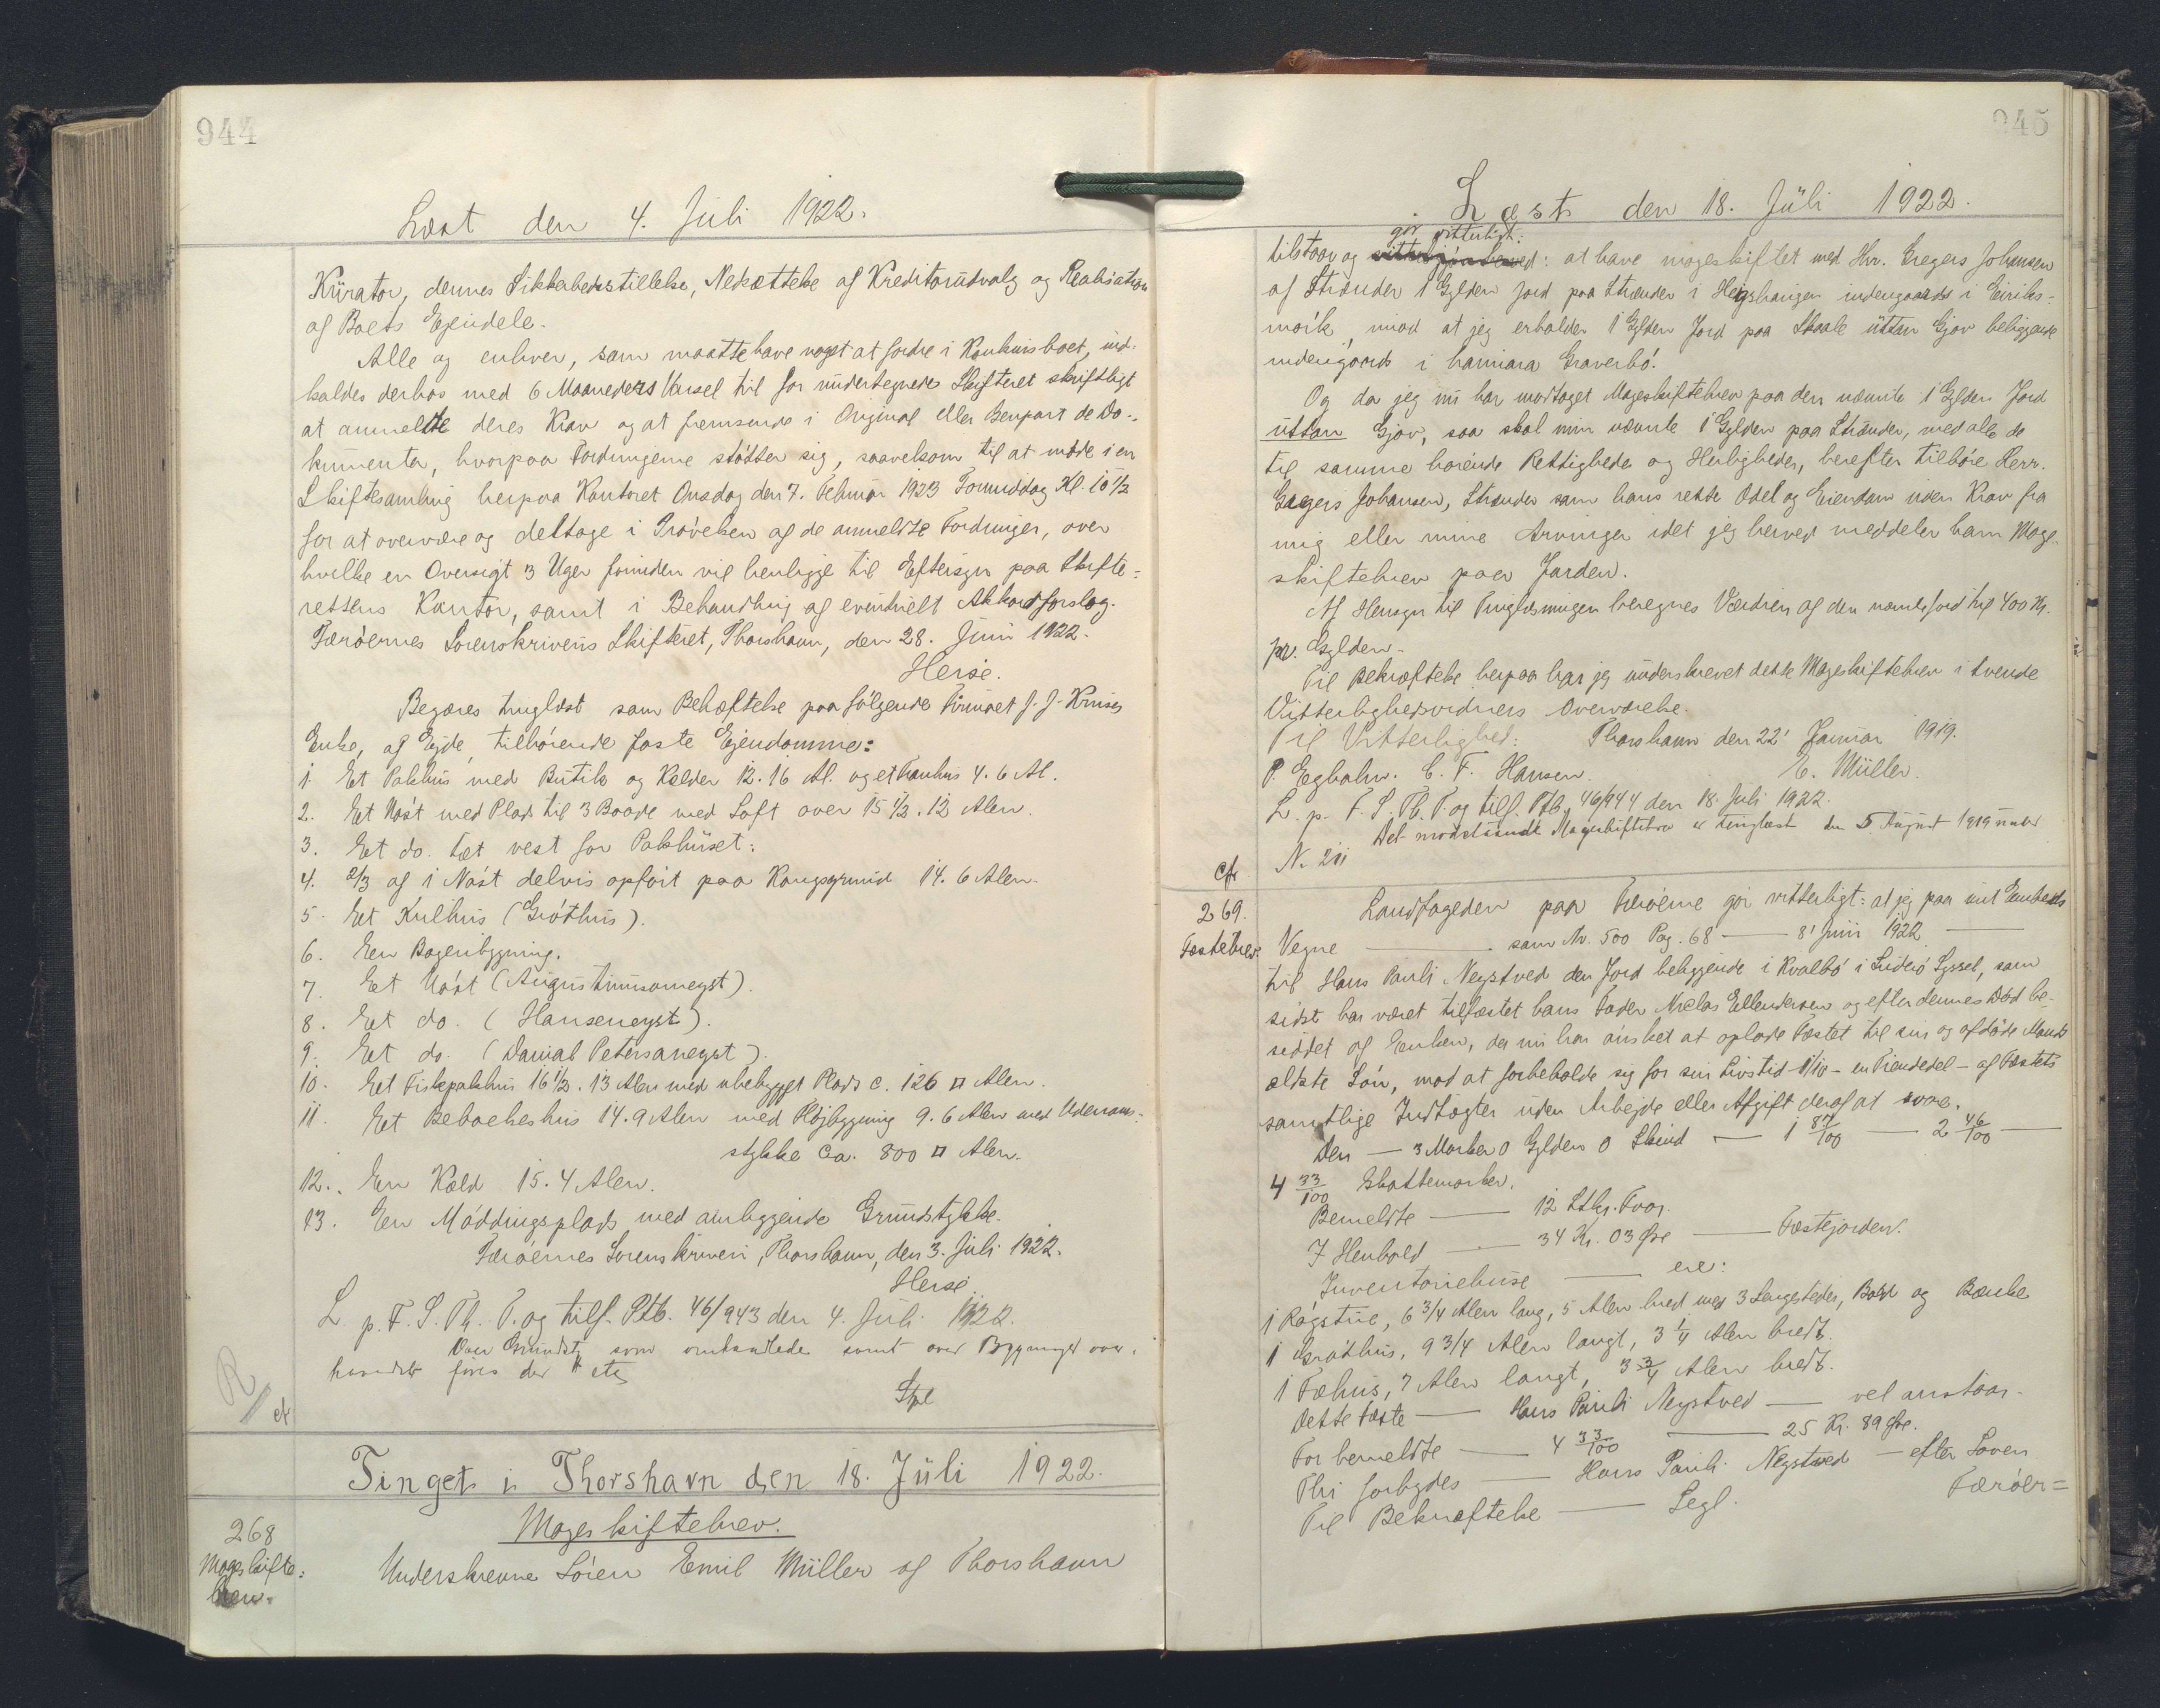 944
Læst den 4. Juli 1922.
Kurator, dennes Sikkerhedsstillelse, Nedsættelse af Kreditorudvalg og Realisation
af Boets Ejendele.
Alle og enhver, som maatte have noget at fordre i Konkursboet, ind-
kaldes derhos med 6 Maaneders Varsel til for undertegnede Skifteret skriftligt
at anmelde deres Krav og at fremsende i Original eller Genpart de Do-
kumenter, hvorpaa Fordringerne støtter sig, saavelsom til at møde i en
Skiftesamling herpaa Kontoret Onsdag den 7. Februar 1923 Formiddag Kl. 10 1/2
for at overvære og deltage i Prøvelsen af de anmeldte Fordringer, over
hvilke en Oversigt 3 Uger forinden vil henligge til Eftersyn paa Skifte-
rettens Kontor, samt i Behandling af eventuelt Akkordforslag.
Færøernes Sorenskriveris Skifteret, Thorshavn, den 28. Juni 1922.
Herse.
Begæres tinglæst som Behæftelse paa følgende Firmaet J. J. Kruses
Enke, af Ejde, tilhørende faste Ejendomme:
1. Et Pakhus med Butik og Kelder 12.16 Al. og et Tranhus 4.6 Al.
2. Et Nøst med Plads til 3 Baade med Loft over 15 1/2.12 Alen.
3. Et do. tæt vest for Pakhuset.
4. 2/3 af 1 Nøst delvis opført paa Kongsgrund 14.6 Alen.
5. Et Kulhus (Gróthus).
6. En Bageribygning.
7. Et Nøst (Augustinusarneyst).
8. Et do. (Hanseneyst).
9. Et do. (Danial Petersaneyst).
10. Et Fiskepakhus 16 1/2.13 Alen med ubebygget Plads c. 126 □ Alen.
11. Et Beboelseshus 14.9 Alen med Fløjbygning 9.6 Alen med Udenoms-
stykke Ca. 800 □ Alen.
12. En Kæld 15.4 Alen.
13. En Møddingsplads med omliggende Grundstykke.
Færøernes Sorenskriveri, Thorshavn, den 3. Juli 1922.
Herse
L. p. F. S. Th. T. og tilf. Ptb. 46/943 den 4. Juli 1922.
som omhandlede samt over
R
cfr
Tinget i Thorshavn den 18. Juli 1922.
268
Mageskifte-
brev.
Mageskiftebrev.
Underskrevne Sören Emil Müller af Thorshavn
945
Læst den 18. Juli 1922.
gør vitterligt:
tilstaar og : at have mageskiftet med Hr. Gregers Johansen
af Strænder 1 Gylden Jord paa Strænder i Heygshaugen indengaards i Eiriks-
mørk, mod at jeg erholder 1 Gylden Jord paa Skaale uttan Gjov beliggende
indengards i hamara Graverbø.
Og da jeg nu har modtaget Mageskiftebrev paa den nævnte 1 Gylden Jord
uttan Gjov, saa skal min nævnte 1 Gylden paa Strænder, med alle de
til samme hørende Rettigheder og Herligheder, herefter tilhøre Herr.
Gregers Johansen, Strænder som hans rette Odel og Eiendom uden Krav fra
mig eller mine Arvinger idet jeg herved meddeler ham Mage-
skiftebrev paa Jorden.
Af Hensyn til Tinglæsningen beregnes Værdien af den nævnte Jord til 400 Kr.
pr. Gylden.
Til Bekræftelse herpaa har jeg underskrevet dette Mageskiftebrev i tvende
Vitterlighedsvidners Overværelse.
Til Vitterlighed: Thorshavn den 22' Januar 1919.
P. Egholm. C. F. Hansen. E. Müller.
L. p. F. S. Th. T. og tilf. Ptb. 46/944 den 18. Juli 1922.
Det modstaaende Mageskiftebrev er tinglæst den 5 August 1919 under
cfr. N. 211
269.
Fæstebrev.
Landfogeden paa Færøerne gør vitterligt: at jeg paa mit Embeds
Vegne — som Nr. 500 Pag. 68 — 8' Juni 1922 —
til Hans Pauli Neystved den Jord beliggende i Kvalbø i Suderø Syssel, som
sidst har været tilfæstet hans Fader Niclas Ellendersen og efter dennes Død be-
siddet af Enken, der nu har ønsket at oplade Fæstet til sin og afdøde Mands
ældste Søn, mod at forbeholde sig for sin Livstid 1/10 - en Tiendedel - af Fæstets
samtlige Indtægter uden Arbejde eller Afgift deraf at svare.
Den — 3 Marker 0 Gylden 0 Skind — 1 87/100 — 2 46/100 —
4 33/100 Skattemarker.
Bemeldte — 12 Stkr. Faar.
I Henhold — 34 Kr. 03 Øre — Fæstejorden.
Inventariehuse — ere:
1 Røgstue, 6 3/4 Alen lang, 5 Alen bred med 3 Sengesteder, Bord og Bænke
1 Gróthus, 9 3/4 Alen langt, 3 1/4 Alen bredt.
1 Fæhus, 7 Alen langt, 3 3/4 Alen bredt.
Dette Fæste — Hans Pauli Neystved — vel anstaar.
For bemeldte — 4 33/100 — 25 Kr. 89 Øre.
Thi forbydes — Hans Pauli Neystved — efter Loven
Til Bekræftelse — Segl. Færøer=